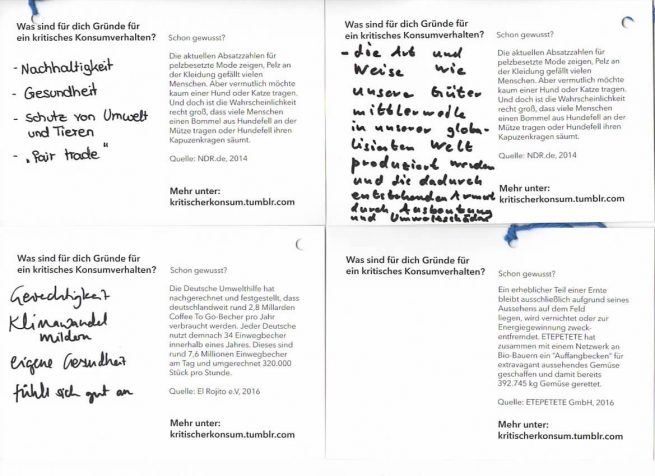 Was sind für dich Gründe für
ein kritisches Konsumverhalten?
- Nachhaltigkeit
- Gesundheit
- Schutz von Umwelt
und Tieren
- „Fair trade"
Schon gewusst?
Die aktuellen Absatzzahlen für
pelzbesetzte Mode zeigen, Pelz an
der Kleidung gefällt vielen
Menschen. Aber vermutlich möchte
kaum einer Hund oder Katze tragen.
Und doch ist die Wahrscheinlichkeit
recht groß, dass viele Menschen
einen Bommel aus Hundefell an der
Mütze tragen oder Hundefell ihren
Kapuzenkragen säumt.
Quelle: NDR.de, 2014
Mehr unter:
kritischerkonsum.tumblr.com
Was sind für dich Gründe für
ein kritisches Konsumverhalten?
- die Art und
Weise wie
unsere Güter
mittlerweile
in unserer globa-
lisierten Welt
produziert werden
und die dadurch
entstehenden Armut
durch Ausbeutung
und Umweltschäden
Schon gewusst?
Die aktuellen Absatzzahlen für
pelzbesetzte Mode zeigen, Pelz an
der Kleidung gefällt vielen
Menschen. Aber vermutlich möchte
kaum einer Hund oder Katze tragen.
Und doch ist die Wahrscheinlichkeit
recht groß, dass viele Menschen
einen Bommel aus Hundefell an der
Mütze tragen oder Hundefell ihren
Kapuzenkragen säumt.
Quelle: NDR.de, 2014
Mehr unter:
kritischerkonsum.tumblr.com
Was sind für dich Gründe für
ein kritisches Konsumverhalten?
Gerechtigkeit
Klimawandel
mildern
eigene Gesundheit
fühlt sich gut an
Schon gewusst?
Die Deutsche Umwelthilfe hat
nachgerechnet und festgestellt, dass
deutschlandweit rund 2,8 Millarden
Coffee To Go-Becher pro Jahr
verbraucht werden. Jeder Deutsche
nutzt demnach 34 Einwegbecher
innerhalb eines Jahres. Dieses sind
rund 7,6 Millionen Einwegbecher
am Tag und umgerechnet 320.000
Stück pro Stunde.
Quelle: El Rojito e.V, 2016
Mehr unter:
kritischerkonsum.tumblr.com
Was sind für dich Gründe für
ein kritisches Konsumverhalten?
Schon gewusst?
Ein erheblicher Teil einer Ernte
bleibt ausschließlich aufgrund seines
Aussehens auf dem Feld
liegen, wird vernichtet oder zur
Energiegewinnung zweck-
entfremdet. ETEPETETE hat
zusammen mit einem Netzwerk an
Bio-Bauern ein "Auffangbecken" für
extravagant aussehendes Gemüse
geschaffen und damit bereits
392.745 kg Gemüse gerettet.
Quelle: ETEPETETE GmbH, 2016
Mehr unter:
kritischerkonsum.tumblr.com